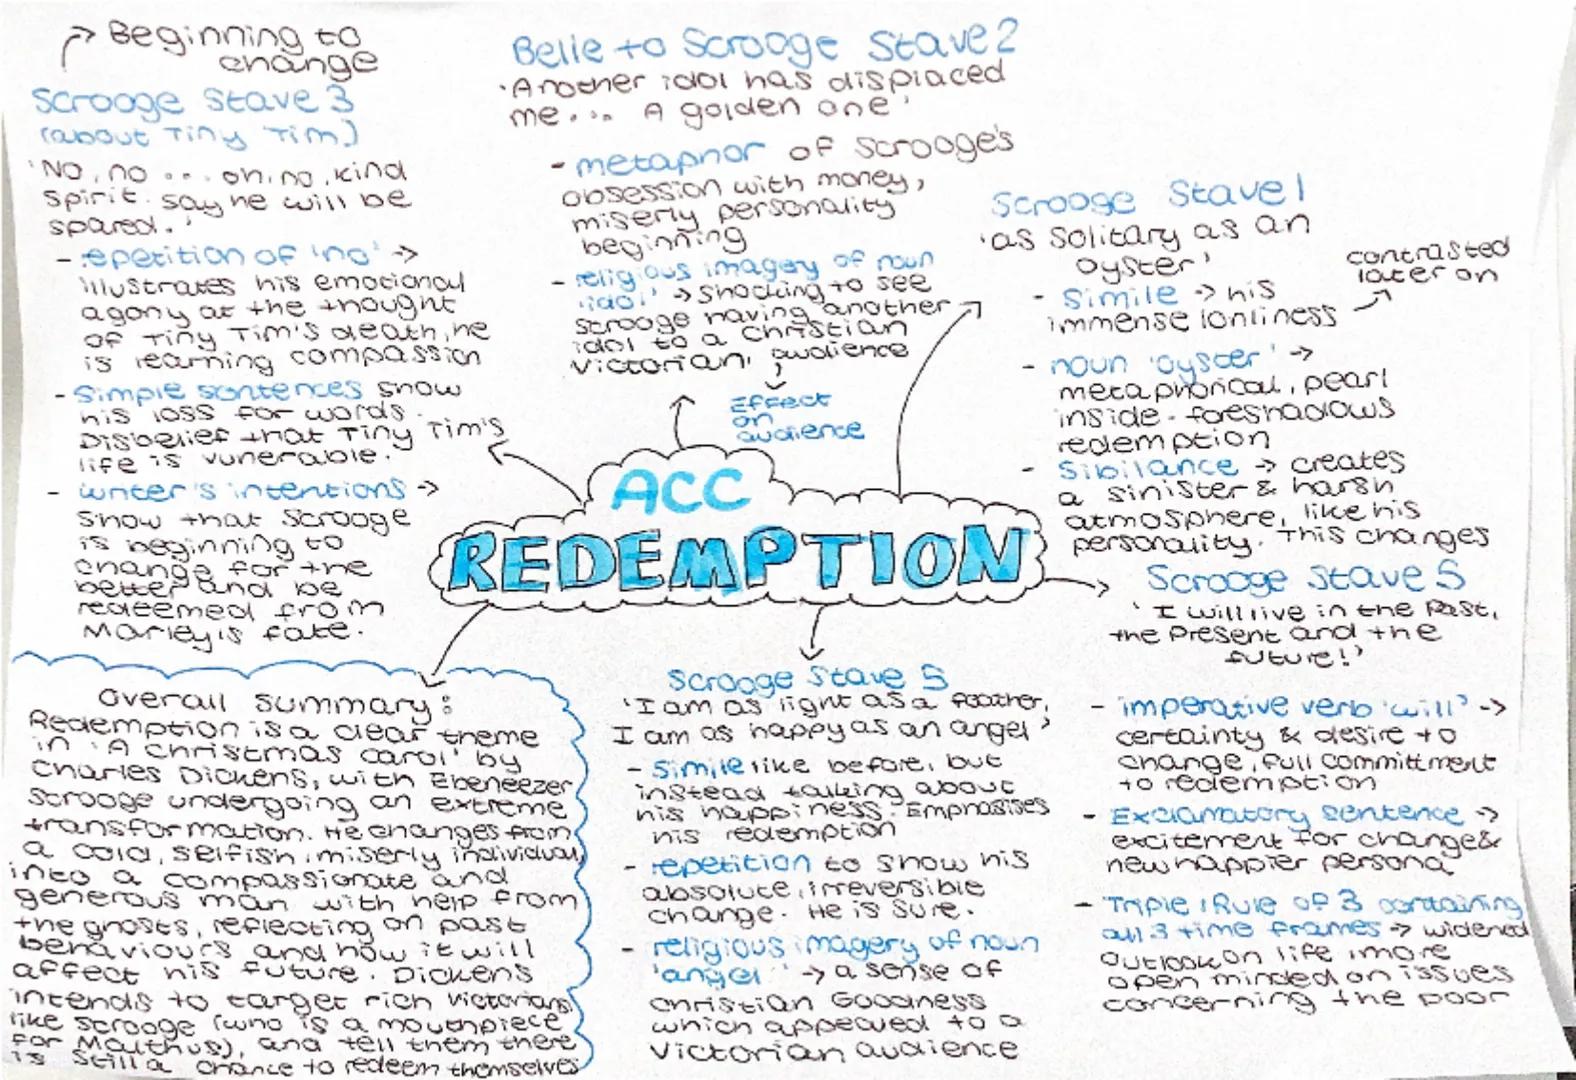 Beginning to
change
Scrooge Stave 3
(about Tiny Tim)
'No, no ... oh, no, kind
spirit. say he will be
spared.'
- repetition of 'no' →
illustrates his emotional
agony at the thought
of Tiny Tim's death, he
is learning compassion
- Simple sentences show
his loss for words.
Disbelief that Tiny Tim's
life is vunerable.
- writer's intentions →
Show that Scrooge
is beginning to
change for the
better and be
redeemed from
Marley's fate.
Belle to Scrooge Stave 2
'Another idol has displaced
me... A golden one'
- metaphor of Scrooge's
obsession with money,
miserly personality
beginning
- religious imagery of noun
'idol' → Shocking to see
Scrooge having another
idol to a Christian
Victorian, audience
Effect
on
audience
Scrooge Stave 1
'as solitary as an
oyster'
contrasted
later on
- Simile → his
immense lonliness
- noun 'oyster' →
metaphorical, pearl
inside - foreshadows
redemption
- Sibilance → creates
a sinister & harsh
atmosphere, like his
personality. This changes
ACC
REDEMPTION
Scrooge Stave 5
'I will live in the Past,
the Present and the
future!'
- imperative verb 'will' →
certainty & desire to
change, full committment
to redemption
- Exclamatory sentence →
excitement for change &
new happier persona
- Triple / Rule of 3 containing
all 3 time frames → widened
outlook on life, more
open minded on issues
concerning the poor
Scrooge Stave 5
'I am as light as a feather,
I am as happy as an angel'
- Simile like before, but
instead talking about
his happiness. Emphasises
his redemption
- repetition to show his
absolute, irreversible
change. He is sure.
- religious imagery of noun
'angel' → a sense of
Christian Goodness
which appealed to a
Victorian audience
Overall summary:
Redemption is a clear theme
in 'A Christmas Carol' by
Charles Dickens, with Ebeneezer
Scrooge undergoing an extreme
transformation. He changes from
a cold, selfish, miserly individual,
into a compassionate and
generous man with help from
the ghosts, reflecting on past
behaviours and how it will
affect his future. Dickens
intends to target rich Victorians
like Scrooge (who is a mouthpiece
for Malthus), and tell them there
is still a chance to redeem themselves